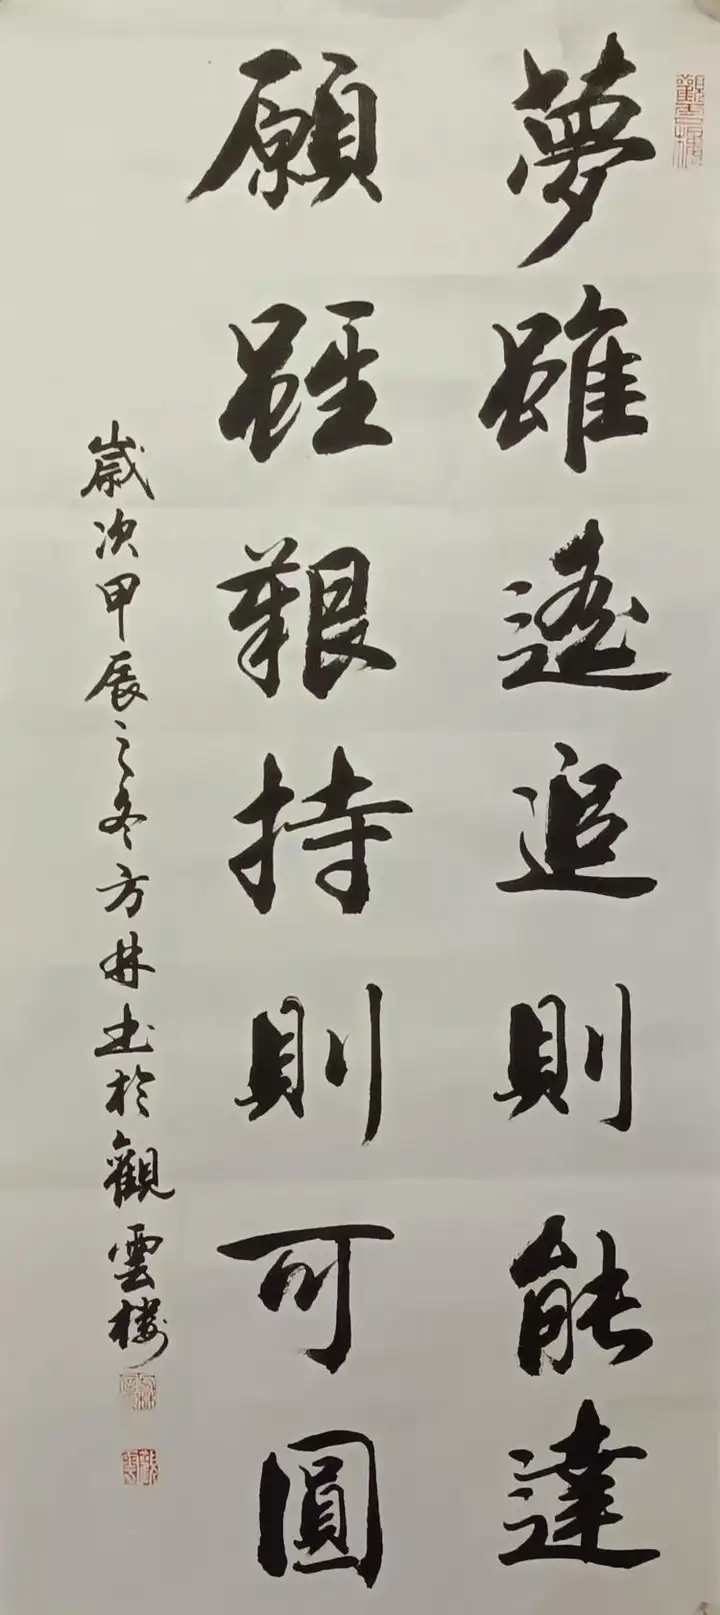 夢雖遙追則能達
願雖艱持則可圓
歲次甲辰之冬方林书於觀雲楼
觀雲楼